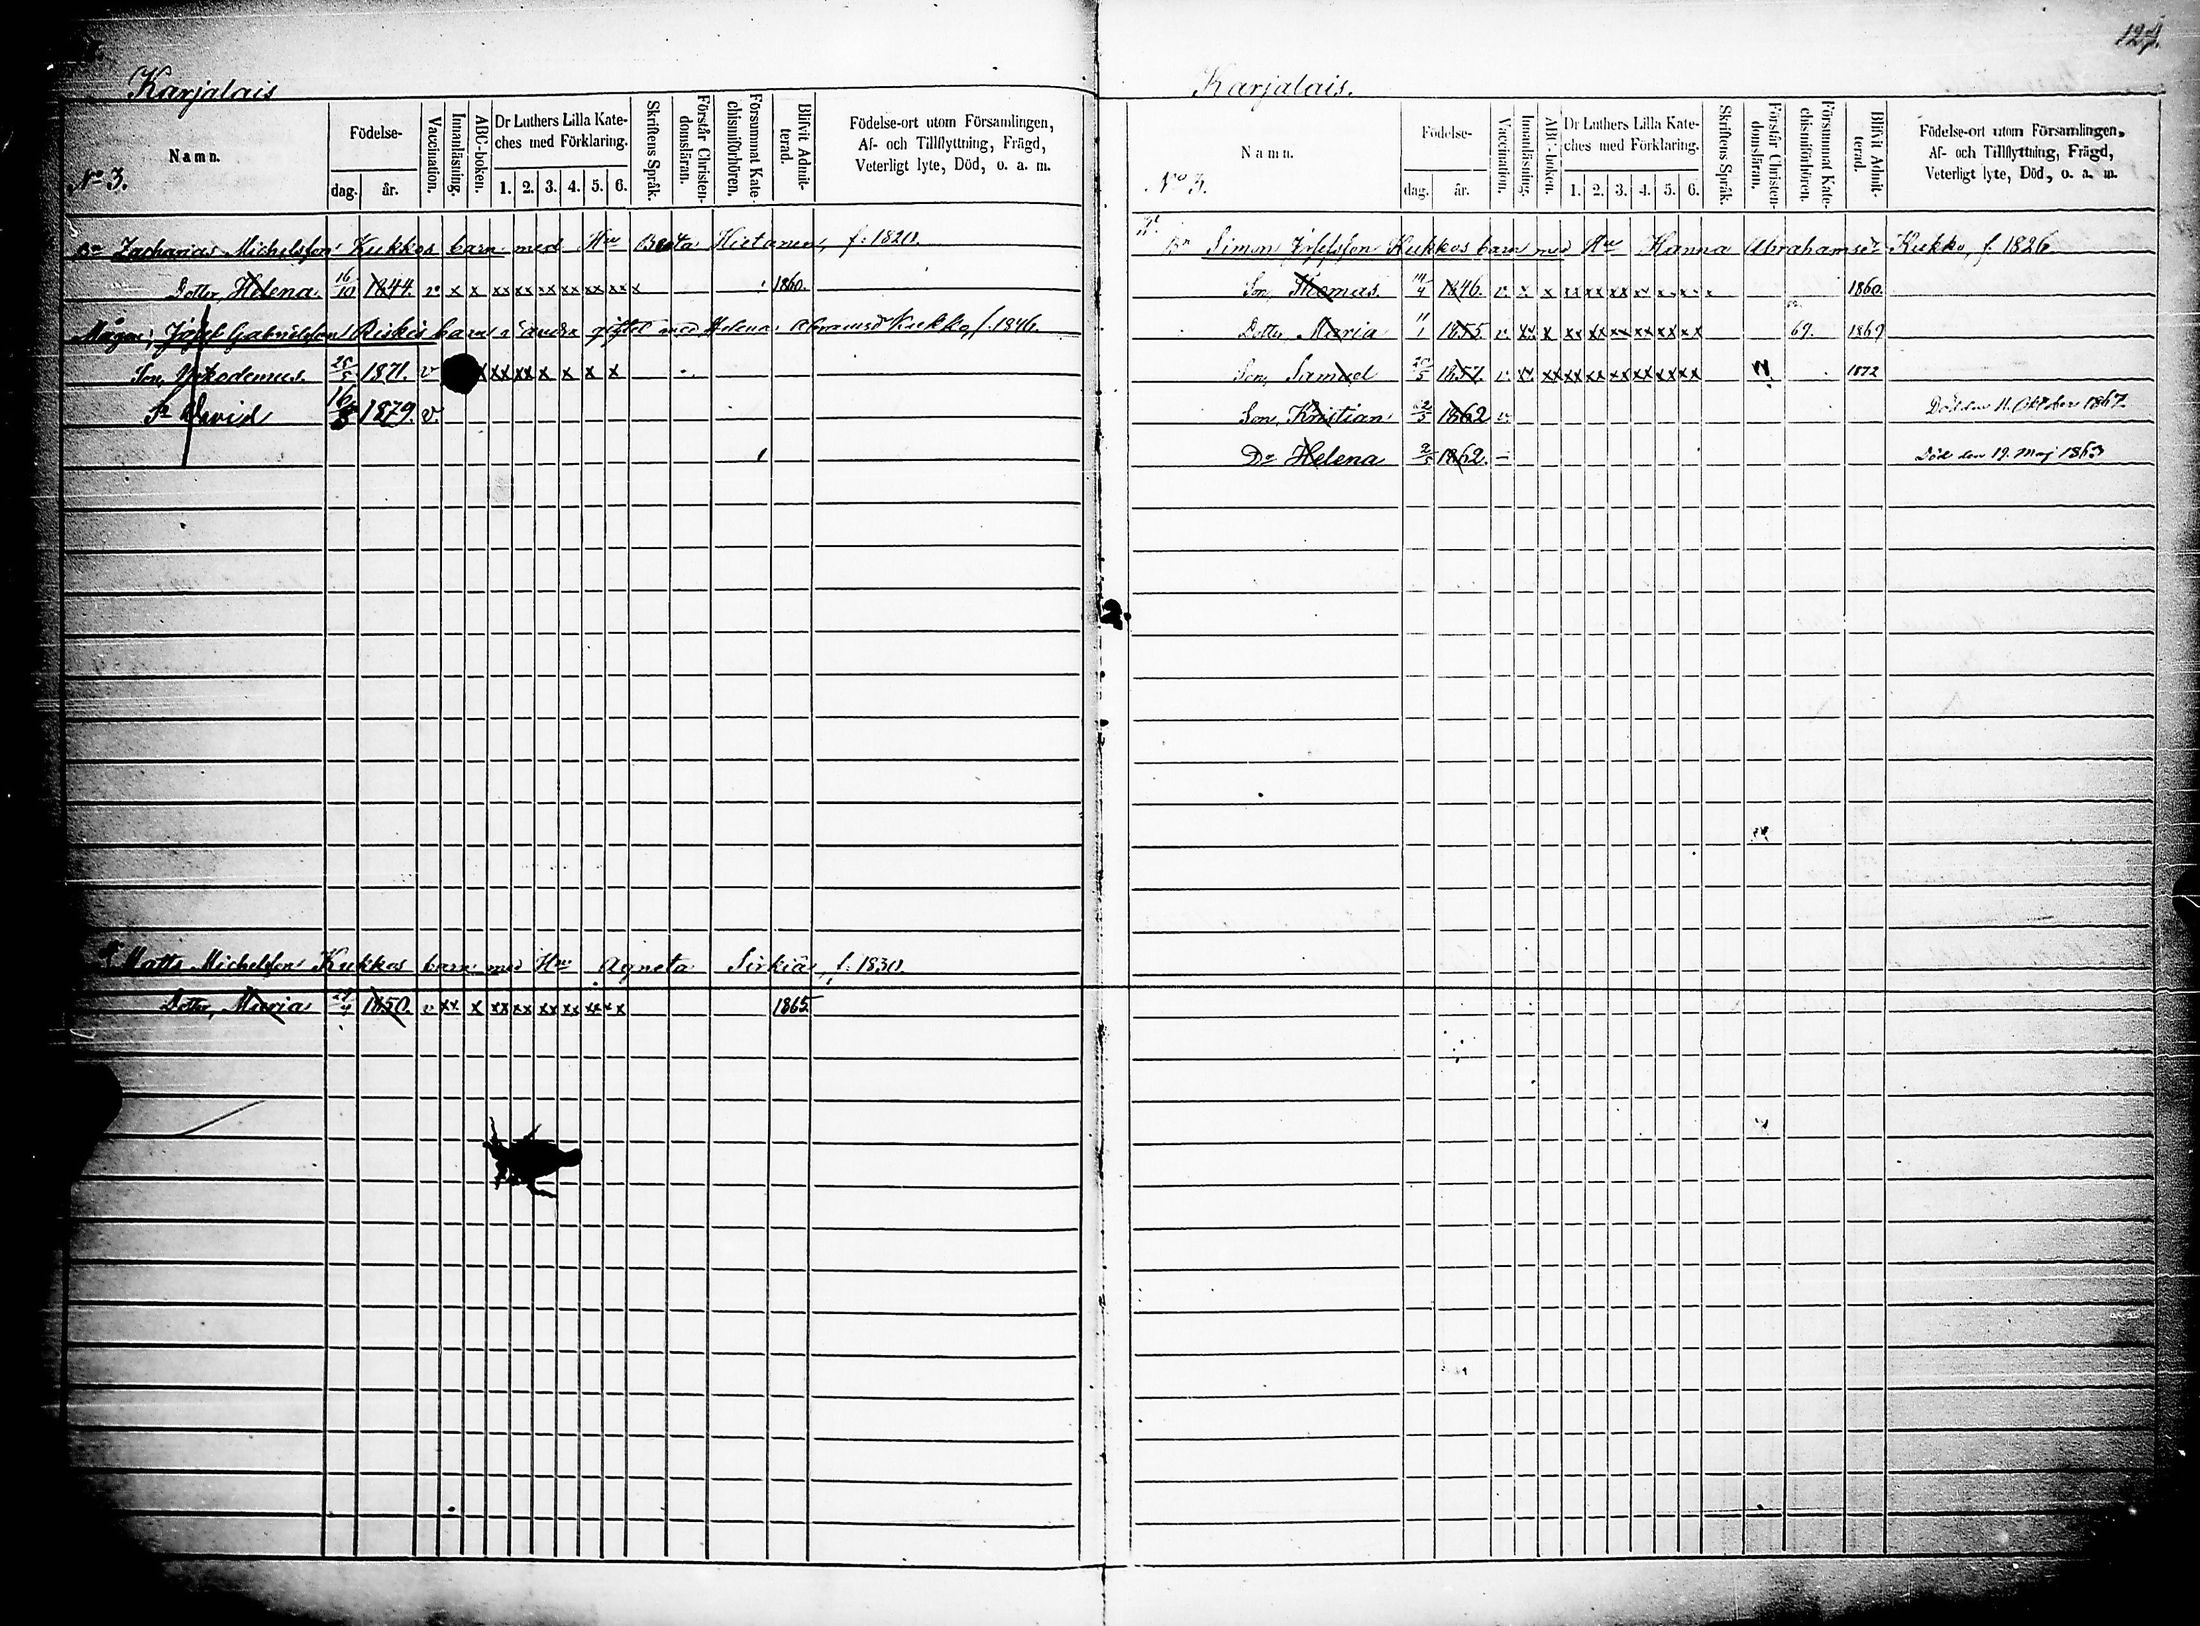 Karjalais
No 3.
Namn.
Födelse-
dag. år.
Vaccination.
Innanläsning.
ABC-boken.
Dr Luthers Lilla Kate-
ches med Förklaring.
1. 2. 3. 4. 5. 6.
Skriftens Språk.
Förstår Christen-
domsläran.
Försummat Kate-
chismiförhören.
Blifvit Admit-
terad.
Födelse-ort utom Församlingen,
Af- och Tillflyttning, Frägd,
Veterligt lyte, Död, o. a. m.
Bn Zacharias Michelsson Kukkos barn med Hu Beata Hietanen, f. 1820.
Dotter, Helena. 16/10 1844. v x x xx xx xx xx xx xx x 1860.
Mågen, Josef Gabrielsson Riskis barn i andra giftet med Helena Abramsd Kukko, f. 1846.
Son, Nikodemus. 1871. v x xx xx x x x x
Sn David 16/3 1879. v.
Matts Michelsson Kukkos barn med Hu Agneta Sirkiä, f. 1830.
Dotter, Maria 1850. v xx x xx xx xx xx xx xx 1865
124.
Karjalais.
No 3.
Namn.
Födelse-
dag. år.
Vaccination.
Innanläsning.
ABC-boken.
Dr Luthers Lilla Kate-
ches med Förklaring.
1. 2. 3. 4. 5. 6.
Skriftens Språk.
Förstår Christen-
domsläran.
Försummat Kate-
chismiförhören.
Blifvit Admit-
terad.
Födelse-ort utom Församlingen,
Af- och Tillflyttning, Frägd,
Veterligt lyte, Död, o. a. m.
Bn Simon Josefsson Kukkos barn med Hu Hanna Abrahamsdr Kukko, f. 1826.
Son, Thomas. 14/4 1846. v. x x xx xx xx x x x x 1860.
Dotter Maria 11/1 1855. v. xx x xx xx xx xx xx xx 69. 1869
Son, Samuel 1857. v. x xx xx xx xx xx xx xx 1872
Son, Kristian 22/5 1862 v. Död den 11. Oktober 1867.
Dr Helena 2/5 1862. – Död den 19. Maj 1863